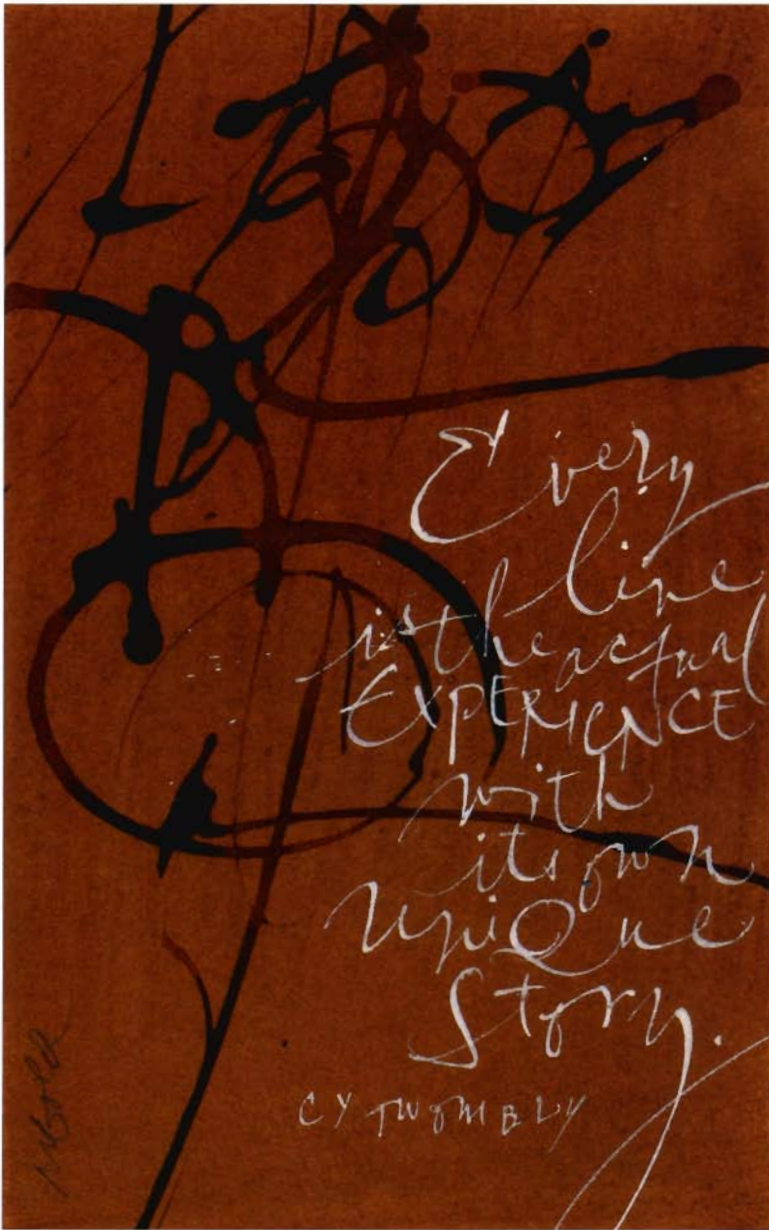 Every
line
is the actual
EXPERIENCE
with
its own
uniQue
Story.
CY TWOMBLY